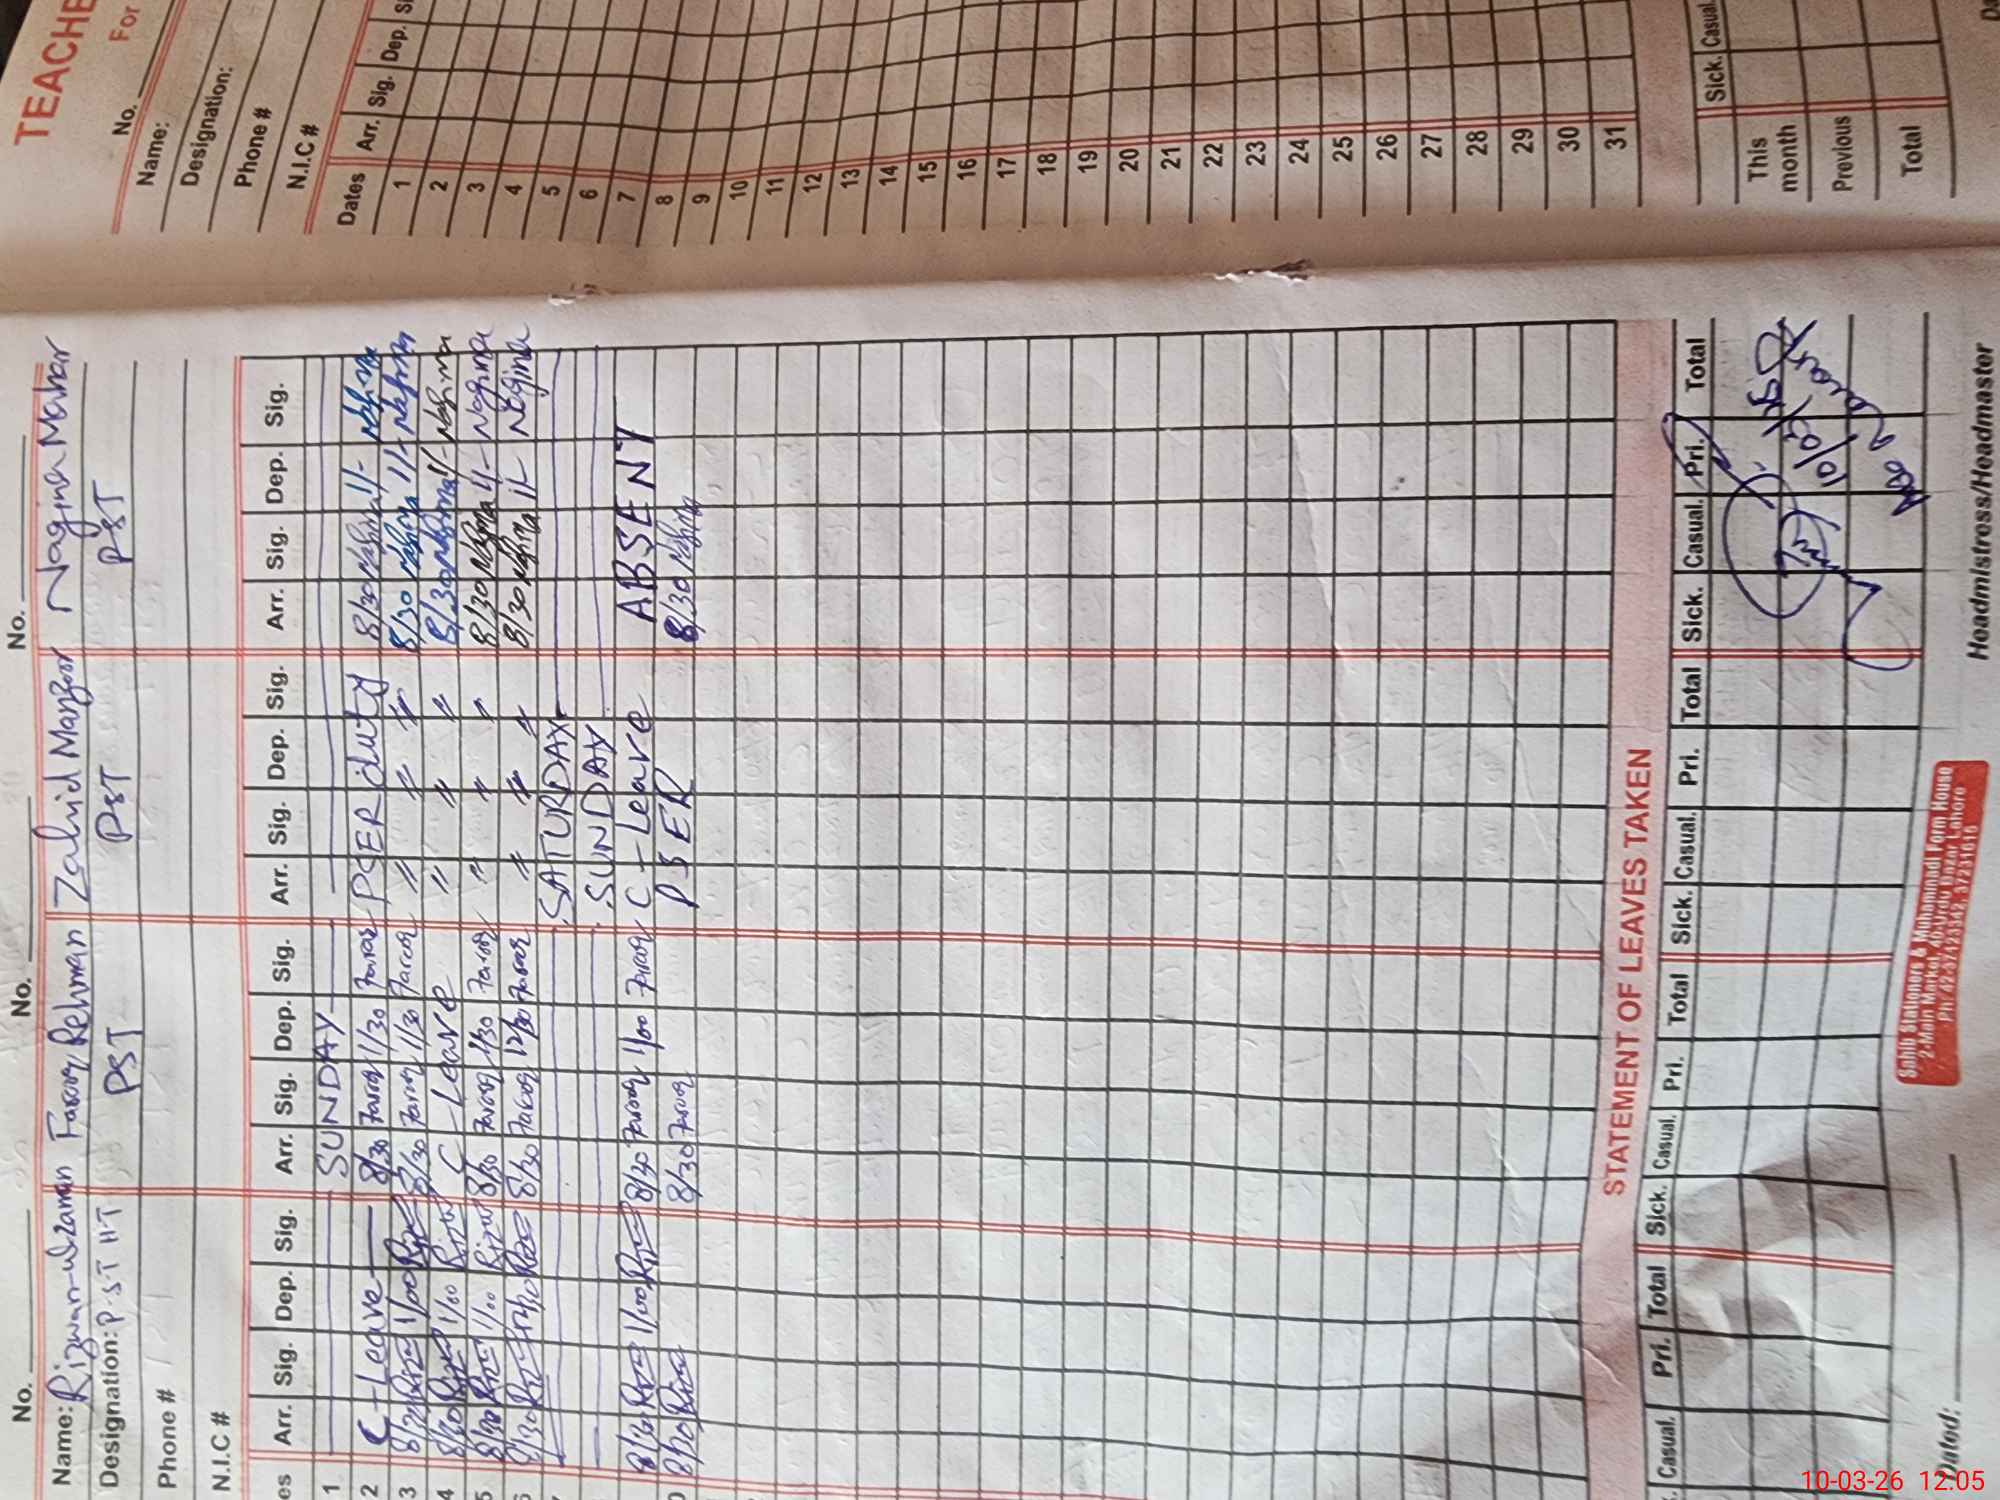 No. No. No. No.
Name: Rizwan-ul-zaman Farooq Rehman Zahid Manzoor Nagina Mahar
Designation: PST HT PST PST PST
Phone #
N.I.C #
es Arr. Sig. Dep. Sig. Arr. Sig. Dep. Sig. Arr. Sig. Dep. Sig. Arr. Sig. Dep. Sig.
1 SUNDAY
2 C-Leave 8/30 Farooq 1/30 Farooq PSER duty 8/30 Nagina 11- Nagina
3 8/30 1/00 8/30 Farooq 1/30 Farooq " " " 8/30 Nagina 11- Nagina
4 8/30 1/00 Rizw C-Leave " " " 8/30 Nagina 11- Nagina
5 8/30 1/00 Rizw 8/30 Farooq 1/30 Farooq " " " 8/30 Nagina 11- Nagina
6 8/30 8/30 Farooq 12/30 Farooq " " " 8/30 Nagina 11- Nagina
SATURDAY
SUNDAY
8/30 1/00 8/30 Farooq 1/00 Farooq C-Leave ABSENT
8/30 8/30 Farooq PSER 8/30 Nagina
STATEMENT OF LEAVES TAKEN
Casual. Pri. Total Sick. Casual. Pri. Total Sick. Casual. Pri. Total Sick. Casual. Pri. Total
10/03/26
Dated:
Sahib Stationers & Muhammadi Form House
2-Main Market, 40-Urdu Bazar Lahore
Ph: 42-37423542, 37231616
Headmistress/Headmaster
TEACHE
For
No.
Name:
Designation:
Phone #
N.I.C #
Dates Arr. Sig. Dep. Si
1
2
3
4
5
6
7
8
9
10
11
12
13
14
15
16
17
18
19
20
21
22
23
24
25
26
27
28
29
30
31
Sick. Casual.
This month
Previous
Total
Da
10-03-26 12:05